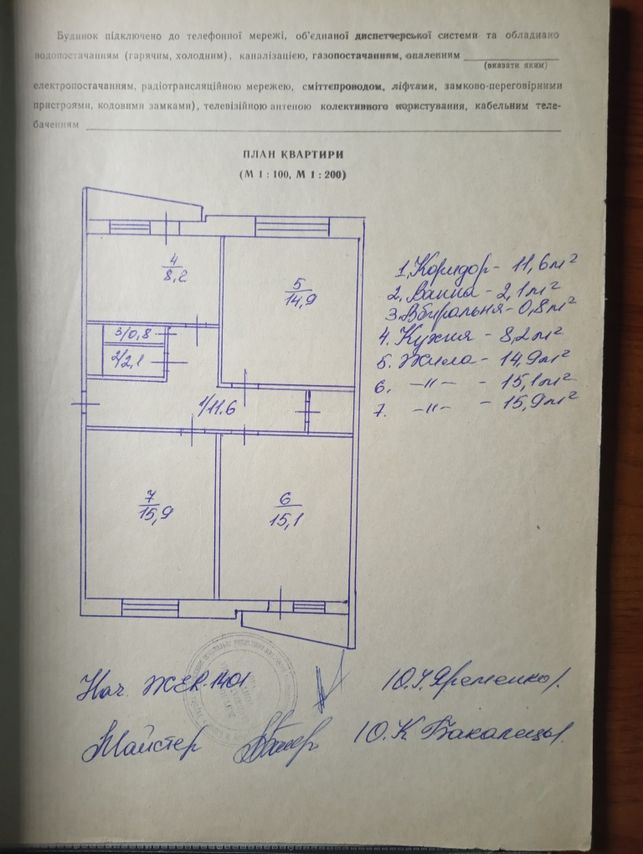 Будинок підключено до телефонної мережі, об'єднаної диспетчерської системи та обладнано
водопостачанням (гарячим, холодним), каналізацією, газопостачанням, опаленням
(вказати яким)
електропостачанням, радіотрансляційною мережею, сміттєпроводом, ліфтами, замково-переговірними
пристроями, кодовими замками), телевізійною антеною колективного користування, кабельним теле-
баченням
ПЛАН КВАРТИРИ
(М 1 : 100, М 1 : 200)
4
8,2
5
14,9
3/0,8
2/2,1
1/11.6
7
15,9
6
15,1
1. Коридор - 11,6м²
2. Ванна - 2,1м²
3. Вбиральня - 0,8м²
4. Кухня - 8,2м²
5. Жила - 14,9м²
6. -"- - 15,1м²
7. -"- - 15,9м²
Нач. ЖЕК-1401 Ю.І. Яременко
Майстер Ю.К.